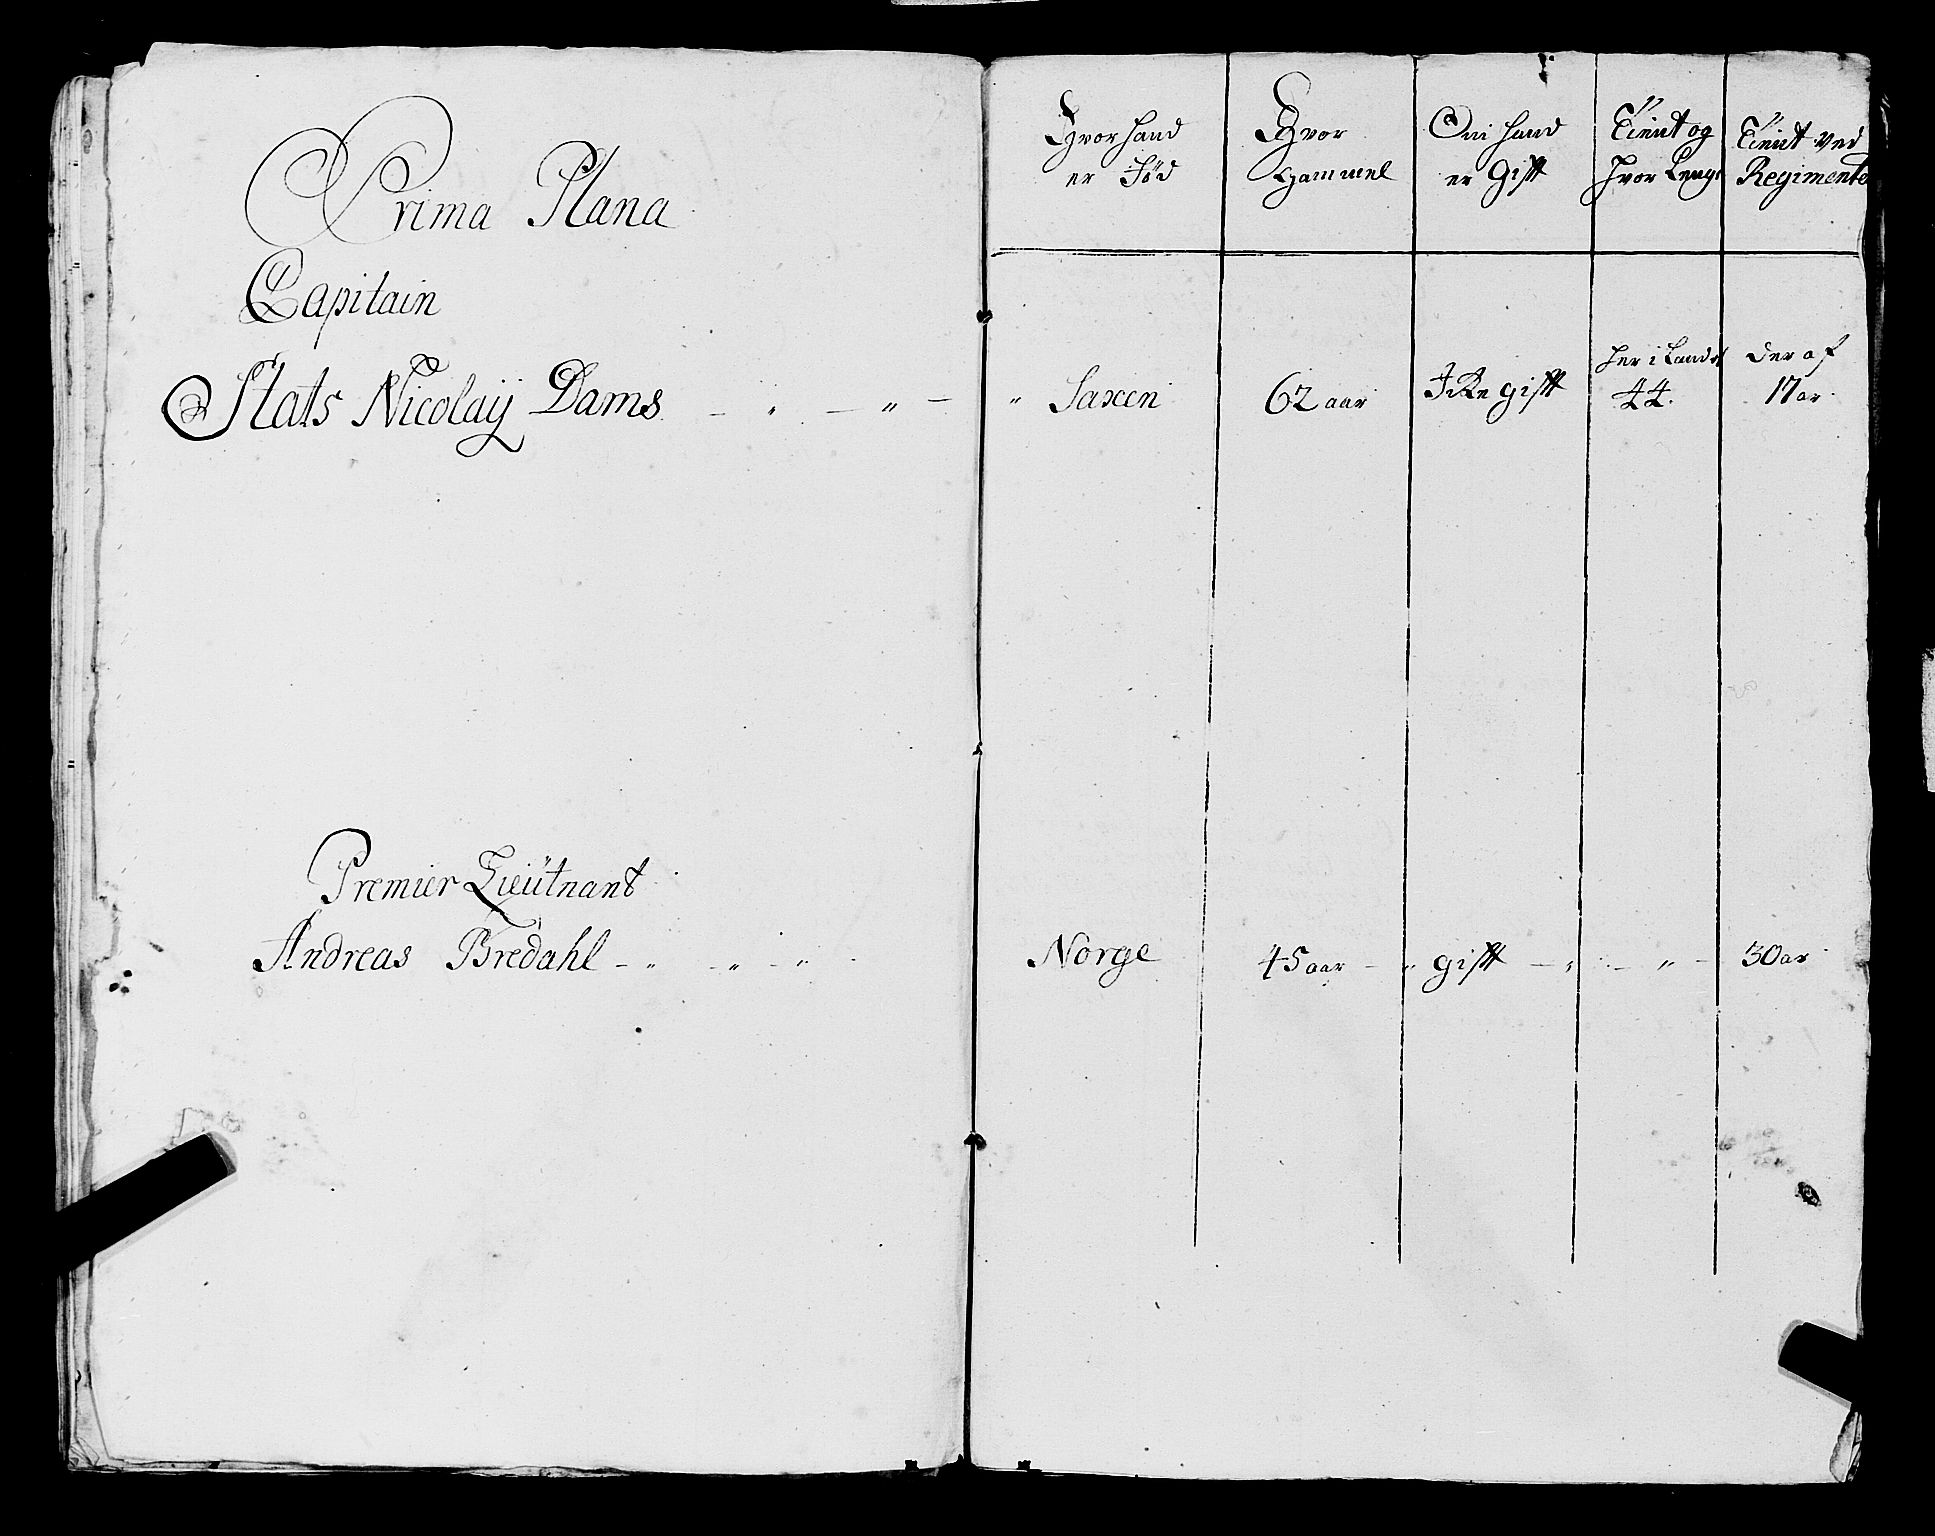 Prima Plana
Capitain
Stats Nicolaÿ Dams
Premier Lieütnant
Andreas Bredahl
Hvor hand
er Fød
Hvor
Gammel
Om hand
er Gift
Tient og
hvor Lenge
Tient ved
Regimentet
Saxen
62 aar
Ikke gift
her i Landet
44.
der af
17 ar
Norge
45 aar
gift
30 ar